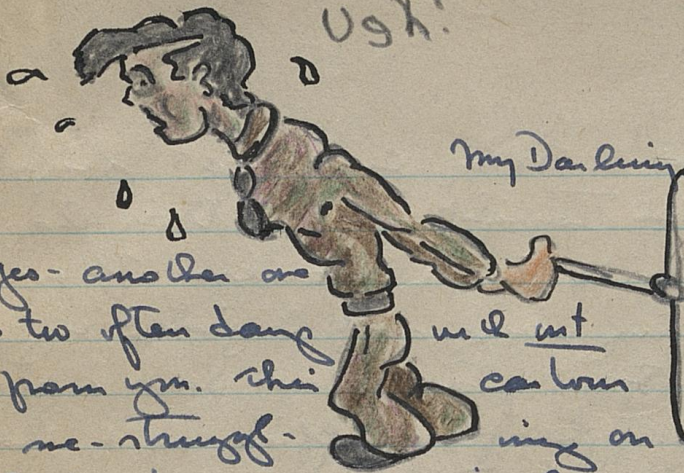 Ugh!
My Darling
yes - another one
too often dang
not
from you. This cartoon
me - struggl- ing on